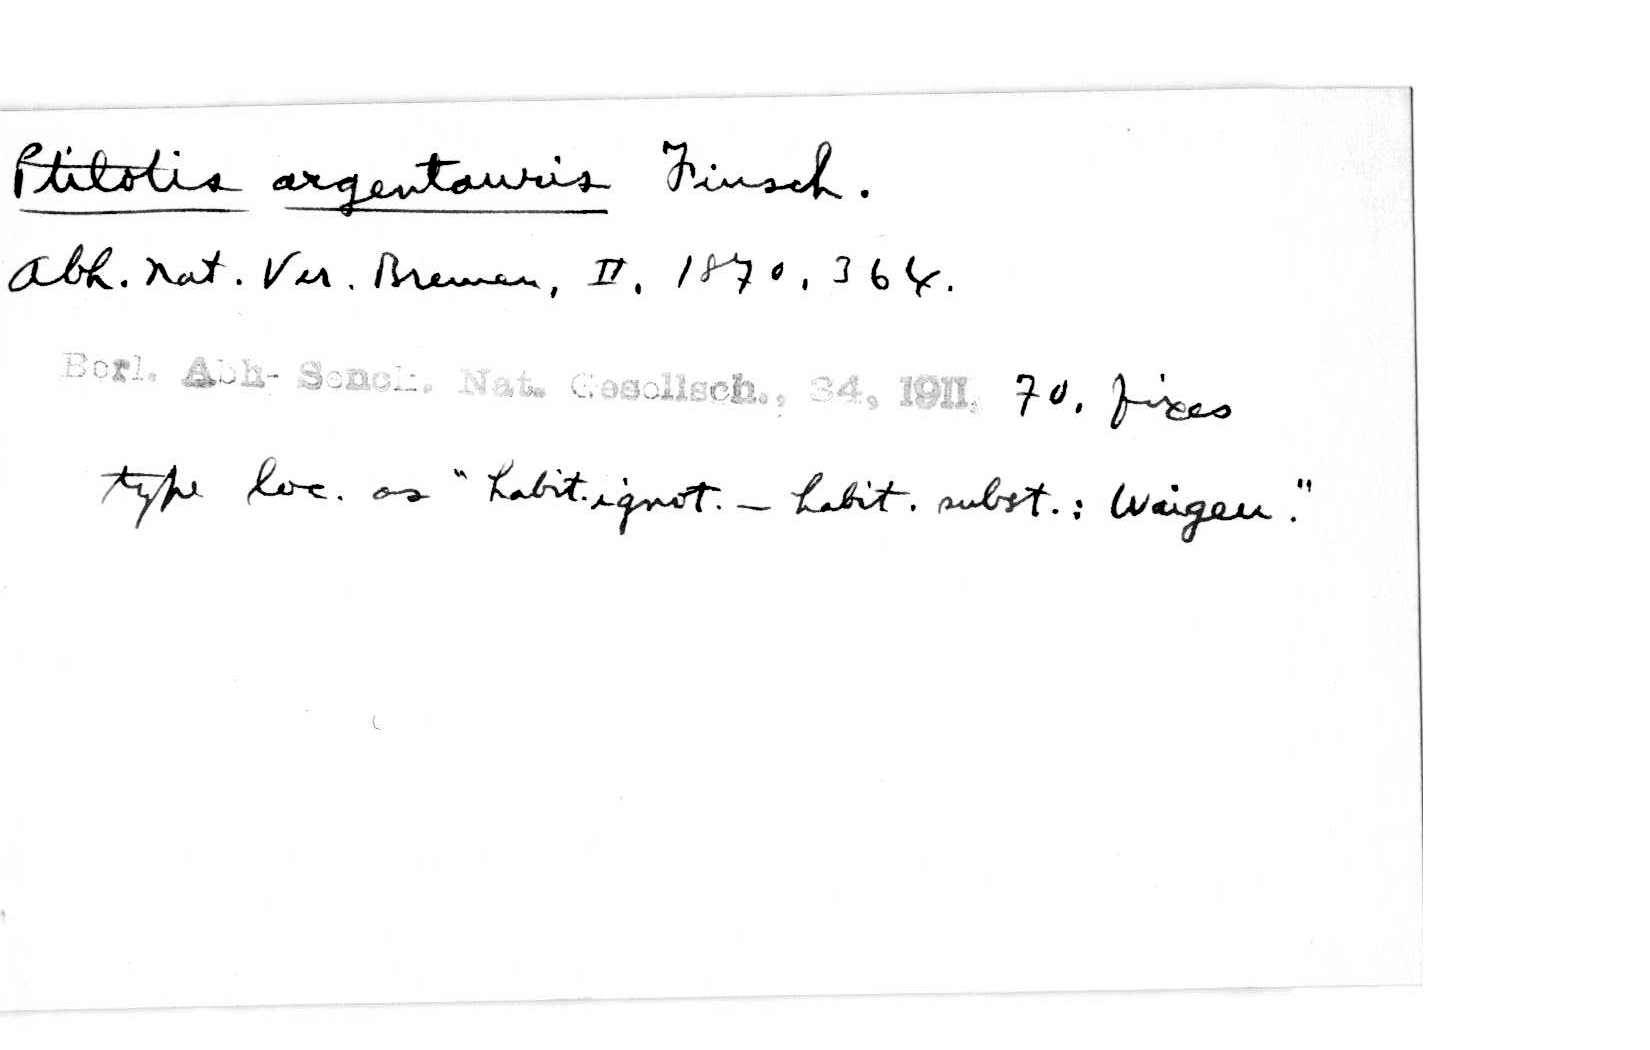 Ptilotis argentauris Finsch.
Abh. Nat. Ver. Bremen, II, 1870, 364.
Berl. Abh- Senck. Nat. Gesellsch., 34, 1911, 70. fixes
type loc. as "habit. ignot. — habit. subst.: Waigeu."